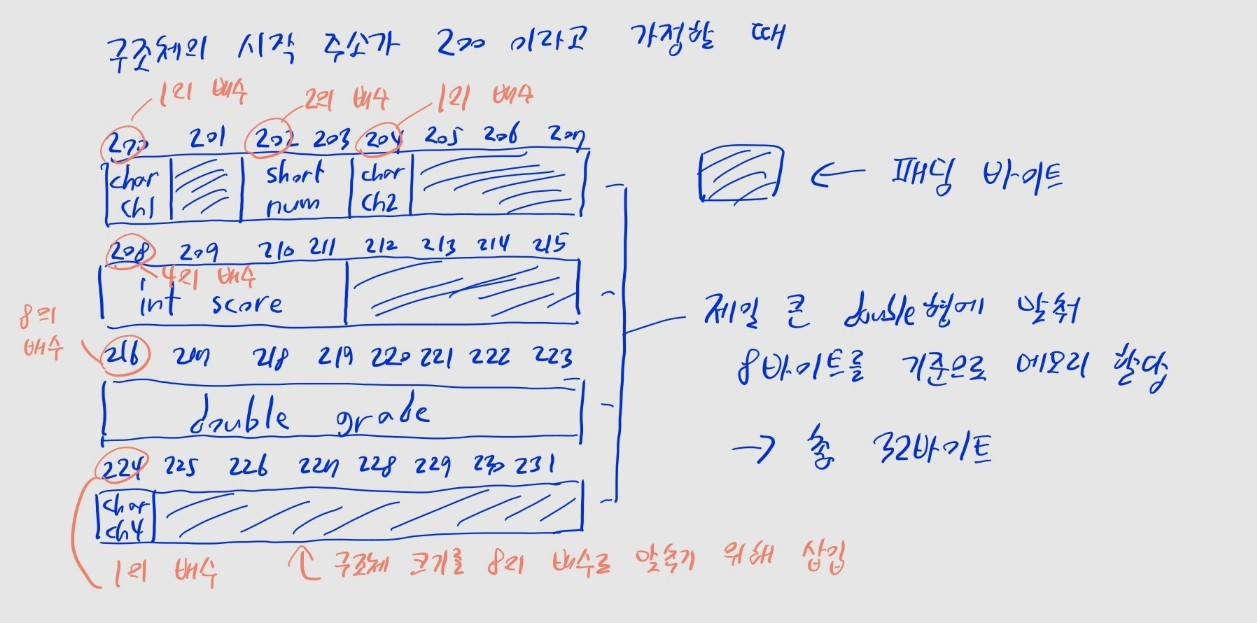 구조체의 시작 주소가 200 이라고 가정할 때
1의 배수 2의 배수 1의 배수
200 201 202 203 204 205 206 207
char ch1
short num
char ch2
← 패딩 바이트
208 209 210 211 212 213 214 215
4의 배수
int score
8의 배수
제일 큰 double형에 맞춰
8바이트를 기준으로 메모리 할당
→ 총 32바이트
216 217 218 219 220 221 222 223
double grade
224 225 226 227 228 229 230 231
char ch4
1의 배수
↑ 구조체 크기를 8의 배수로 맞추기 위해 삽입